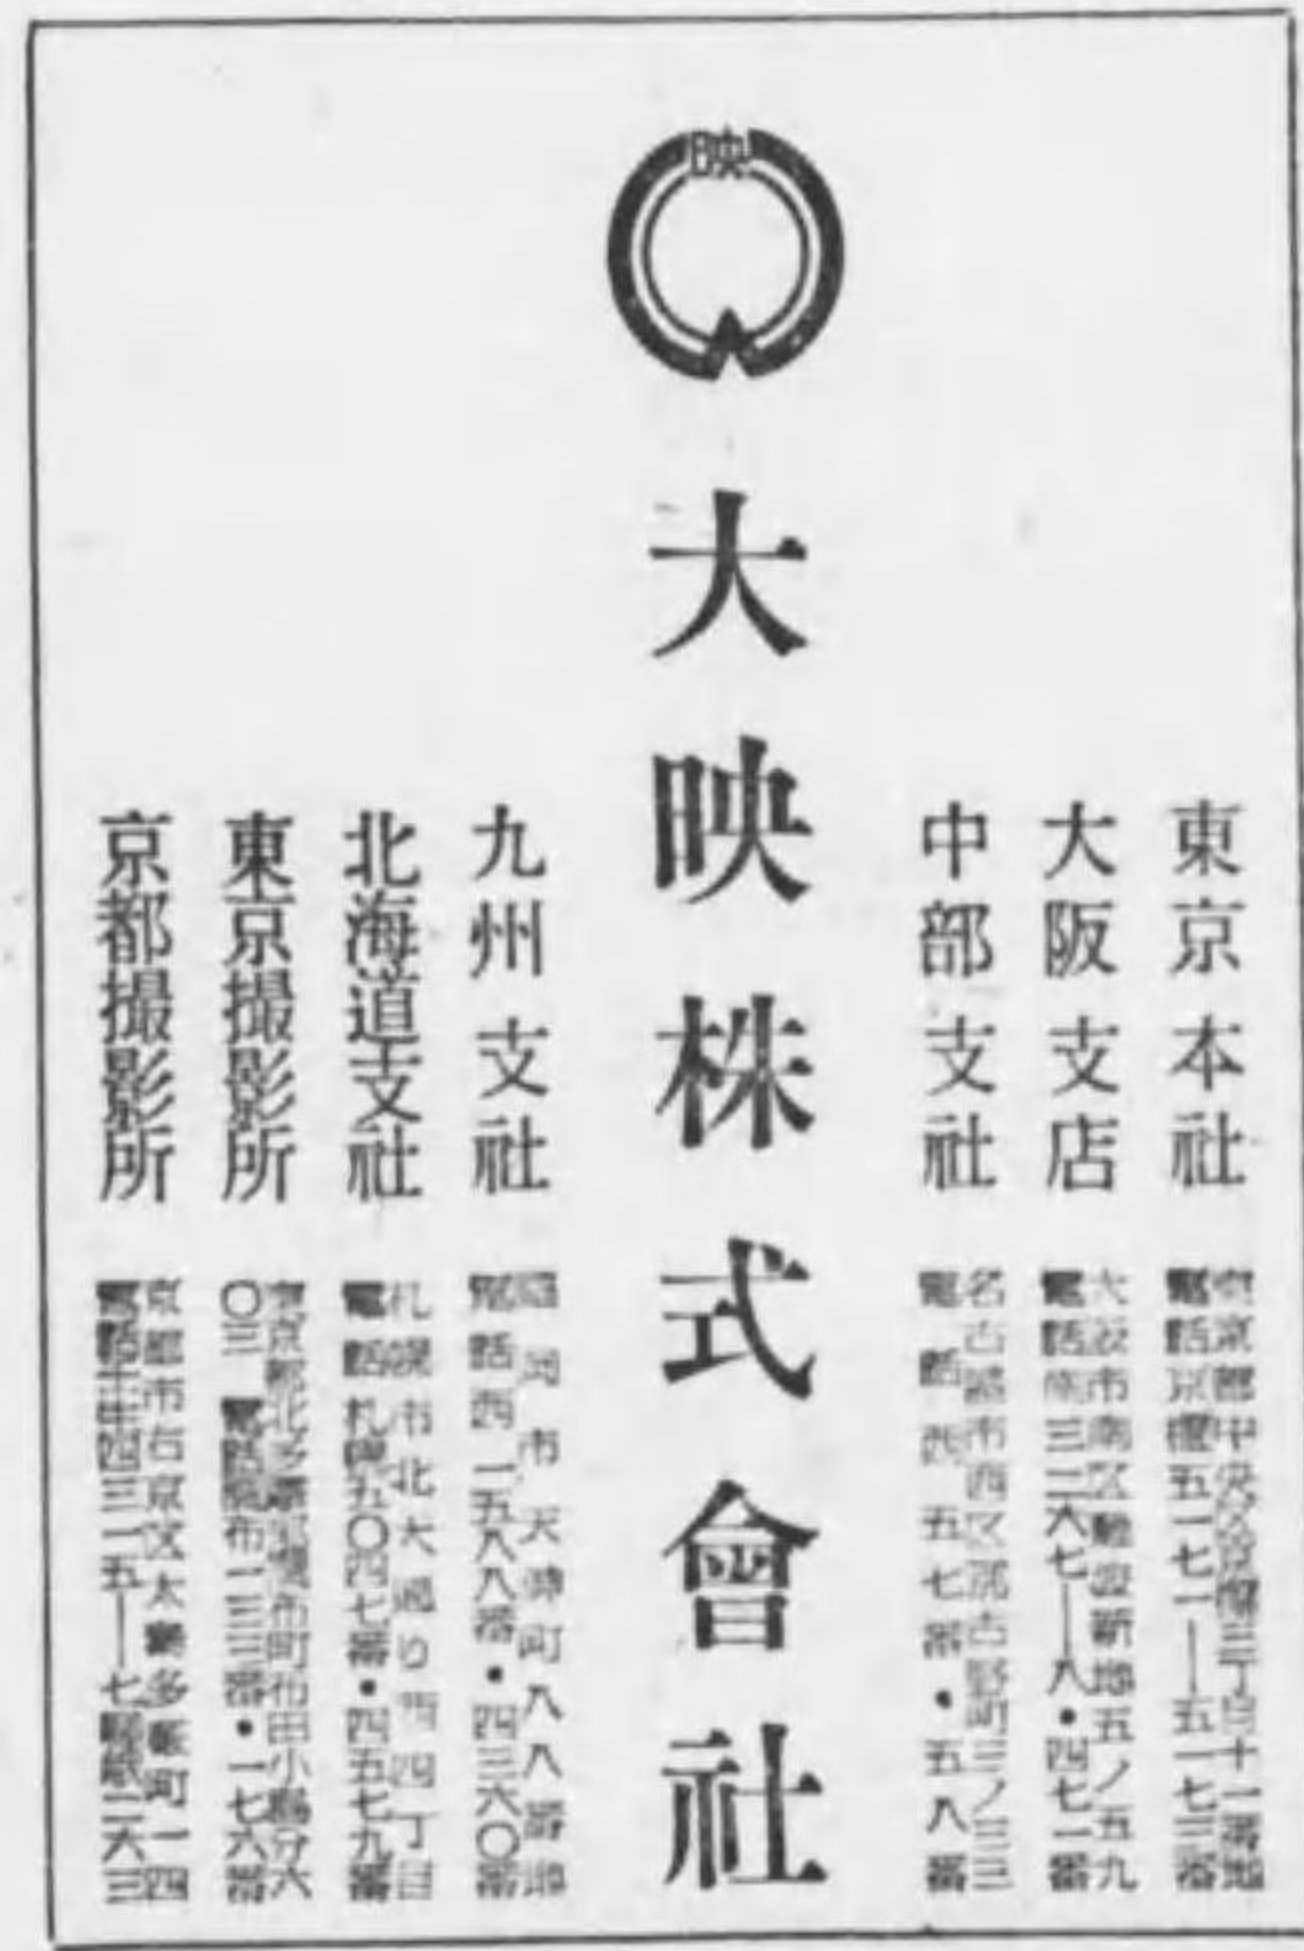 映
東京本社
東京都中央区京橋三丁目十一番地
電話京橋五一七一―五一七三番
大阪支店
大阪市南区難波新地五ノ五九
電話南三二六七―八・四七一番
中部支社
名古屋市西区那古野町三ノ三三
電話西五七番・五八番
大映株式會社
九州支社
福岡市天神町八八番地
電話西一五八八番・四三六〇番
北海道支社
札幌市北大通り西四丁目
電話札幌五〇四七番・四五七九番
東京撮影所
東京都北多摩郡調布町布田小島分六
〇三 電話調布一三三番・一七六番
京都撮影所
京都市右京区太秦多藪町一四
電話壬生四三一五―七 二六三